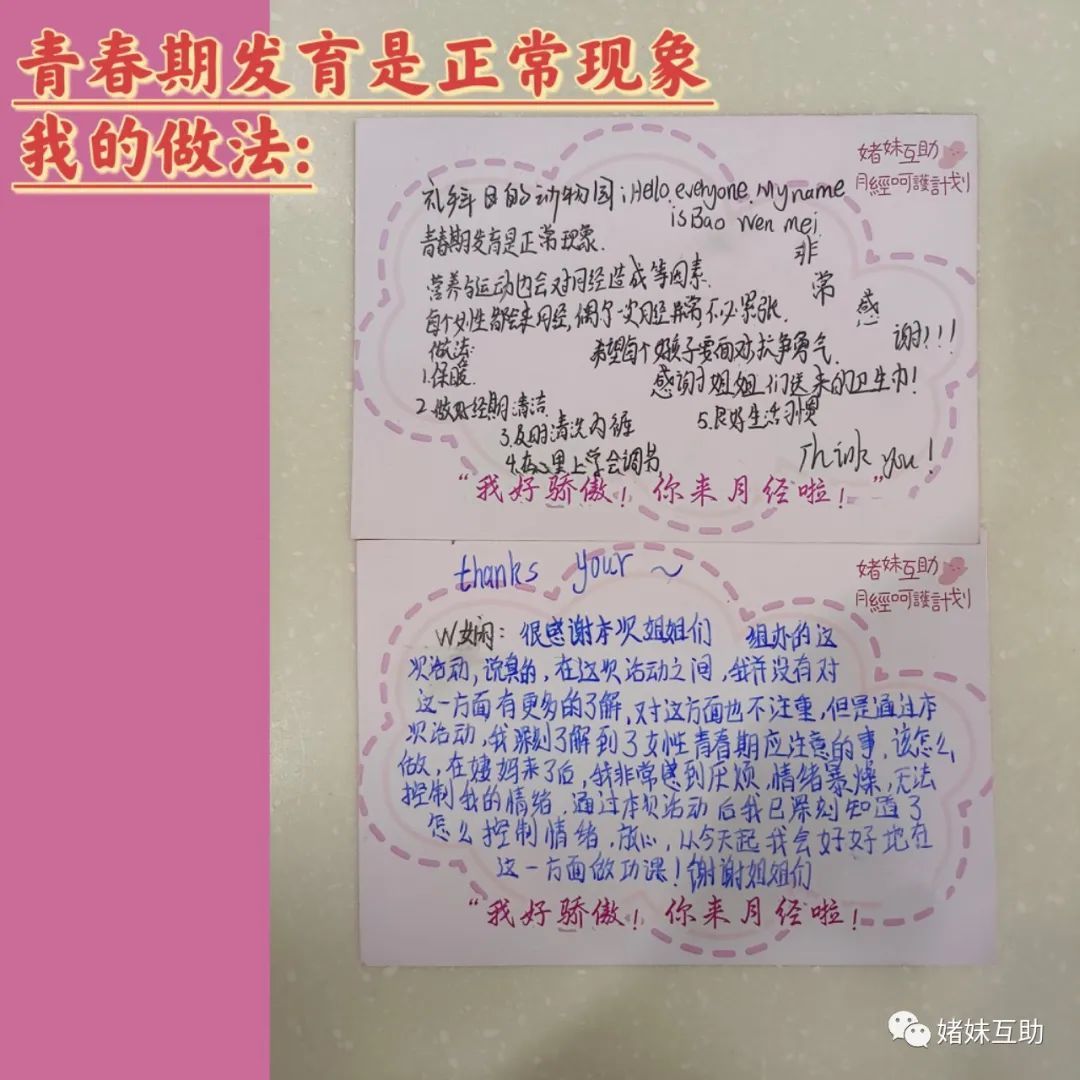 青春期发育是正常现象
我的做法:
媎妹互助
月經呵護計划
礼拜日的动物园:Hello.everyone.My name
is Bao Wen mei.
青春期发育是正常现象.
营养与运动也会对月经造成等因素.
每个女性都会来月经,偶尔一次月经异常不必紧张.
做法:
希望每个女孩子要面对抗争勇气.
非常感谢!!!
1.保暖.
感谢姐姐们送来的卫生巾!
2.做好经期清洁.
5.良好生活习惯
3.及时清洗内裤
4.在心里上学会调节
Think you!
“我好骄傲!你来月经啦!”
thanks your ~
媎妹互助
月經呵護計划
W娴:很感谢本次姐姐们 组办的这
次活动,说真的,在这次活动之间,我并没有对
这一方面有更多的了解,对这方面也不注重,但是通过本
次活动,我深刻了解到了女性青春期应注意的事,该怎么
做,在姨妈来了后,我非常感到厌烦,情绪暴燥,无法
控制我的情绪.通过本次活动后我已深刻知道了
怎么控制情绪.放心,从今天起我会好好地在
这一方面做功课!谢谢姐姐们
“我好骄傲!你来月经啦!
媎妹互助